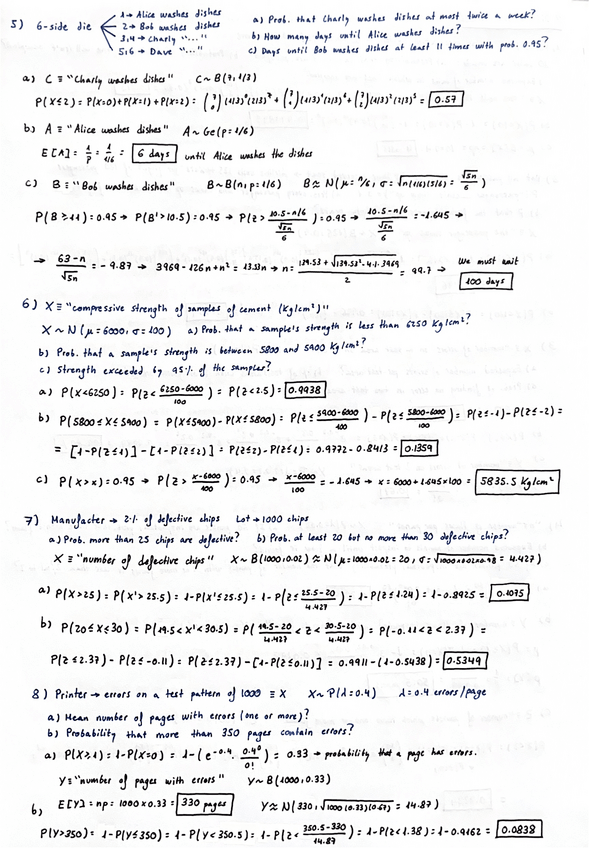 5) 6-side die 1→ Alice washes dishes
2→ Bob washes dishes
3,4→ Charly "..."
5,6→ Dave "..."
a) Prob. that Charly washes dishes at most twice a week?
b) How many days until Alice washes dishes?
c) Days until Bob washes dishes at least 11 times with prob. 0.95?
a) C ≡ "Charly washes dishes" C~B(7,1/3)
P(X≤2) = P(X=0)+P(X=1)+P(X=2) = (7 0)(1/3)^0(2/3)^7 + (7 1)(1/3)^1(2/3)^6 + (7 2)(1/3)^2(2/3)^5 = 0.57
b) A ≡ "Alice washes dishes" A~Ge(p=1/6)
E[A] = 1/p = 1/1/6 = 6 days until Alice washes the dishes
c) B ≡ "Bob washes dishes" B~B(n,p=1/6) B≈N(μ=n/6, σ=√n(1/6)(5/6) = √5n/6)
P(B≥11)=0.95 → P(B'>10.5)=0.95 → P(z> 10.5-n/6 / √5n/6)=0.95 → 10.5-n/6 / √5n/6 = -1.645 →
→ 63-n/√5n = -9.87 → 3969-126n+n² = 13.53n → n = 139.53+√139.53²-4·1·3969 / 2 = 99.7 → We must wait 100 days
6) X ≡ "compressive strength of samples of cement (Kg/cm²)"
X~N(μ=6000, σ=100) a) Prob. that a sample's strength is less than 6250 Kg/cm²?
b) Prob. that a sample's strength is between 5800 and 5900 Kg/cm²?
c) Strength exceeded by 95% of the samples?
a) P(X<6250) = P(z< 6250-6000/100) = P(z<2.5) = 0.9938
b) P(5800≤X≤5900) = P(X≤5900)-P(X≤5800) = P(z≤ 5900-6000/100) - P(z≤ 5800-6000/100) = P(z≤-1)-P(z≤-2) =
= [1-P(z≤1)] - [1-P(z≤2)] = P(z≤2)-P(z≤1) = 0.9772-0.8413 = 0.1359
c) P(X>x)=0.95 → P(z> x-6000/100)=0.95 → x-6000/100 = -1.645 → x = 6000+1.645×100 = 5835.5 Kg/cm²
7) Manufacter → 2% of defective chips Lot → 1000 chips
a) Prob. more than 25 chips are defective? b) Prob. at least 20 but no more than 30 defective chips?
X ≡ "number of defective chips" X~B(1000,0.02) ≈ N(μ=1000×0.02=20, σ=√1000×0.02×0.98 = 4.427)
a) P(X>25) = P(X'>25.5) = 1-P(X'≤25.5) = 1-P(z≤ 25.5-20/4.427) = 1-P(z≤1.24) = 1-0.8925 = 0.1075
b) P(20≤X≤30) = P(19.5<X'<30.5) = P(19.5-20/4.427 <z< 30.5-20/4.427) = P(-0.11<z<2.37) =
P(z≤2.37)-P(z≤-0.11) = P(z≤2.37)-[1-P(z≤0.11)] = 0.9911-(1-0.5438) = 0.5349
8) Printer → errors on a test pattern of 1000 ≡ X X~P(λ=0.4) λ=0.4 errors/page
a) Mean number of pages with errors (one or more)?
b) Probability that more than 350 pages contain errors?
a) P(X≥1) = 1-P(X=0) = 1-(e^-0.4 · 0.4^0/0!) = 0.33 → probability that a page has errors.
Y ≡ "number of pages with errors" Y~B(1000,0.33)
E[Y] = np = 1000×0.33 = 330 pages Y≈N(330, √1000(0.33)(0.67) = 14.87)
b) P(Y>350) = 1-P(Y≤350) = 1-P(Y<350.5) = 1-P(z< 350.5-330/14.87) = 1-P(z<1.38) = 1-0.9162 = 0.0838